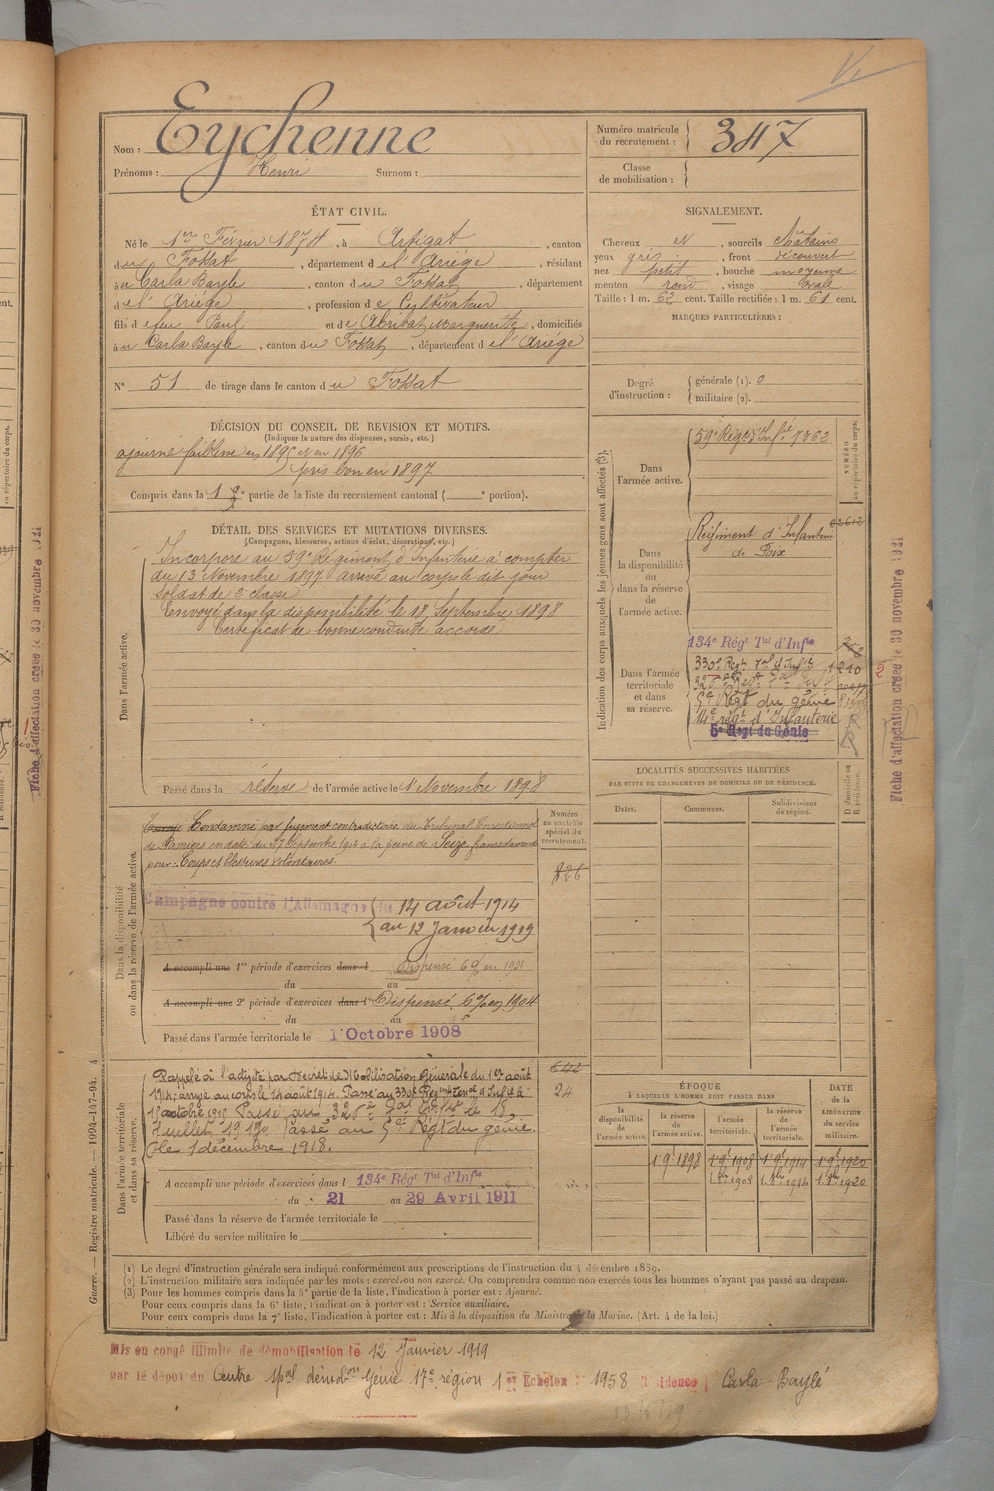 Nom : Eychenne
Prénoms : Henri Surnom :
Numéro matricule du recrutement : 347
Classe de mobilisation :
ÉTAT CIVIL.
Né le 1er Février 1874, à Artigat, canton
du Fossat, département de l'Ariège, résidant
à u Carla Bayle, canton du Fossat, département
de l'Ariège, profession de Cultivateur
fils de feu Paul et de Abribat Marguerite, domiciliés
à u Carla Bayle, canton du Fossat, département de l'Ariège
N° 51 de tirage dans le canton du Fossat
SIGNALEMENT.
Cheveux et, sourcils châtains
yeux gris, front découvert
nez petit, bouche moyenne
menton rond, visage ovale
Taille : 1 m. 62 cent. Taille rectifiée : 1 m. 61 cent.
MARQUES PARTICULIÈRES :
Degré d'instruction : générale (1). 0
militaire (2).
DÉCISION DU CONSEIL DE REVISION ET MOTIFS.
(Indiquer la nature des dispenses, sursis, etc.)
ajourné faiblesse en 1895 et en 1896
pris bon en 1897
Compris dans la 1e partie de la liste du recrutement cantonal ( e portion).
DÉTAIL DES SERVICES ET MUTATIONS DIVERSES.
(Campagnes, blessures, actions d'éclat, décorations, etc.)
Dans l'armée active.
Incorporé au 59e Régiment d'Infanterie à compter
du 13 Novembre 1897 arrivé au corps le dit jour
Soldat de 2e classe
Envoyé dans la disponibilité le 18 Septembre 1898
Certificat de bonne conduite accordé
Passé dans la réserve de l'armée active le 1er Novembre 1898
Indication des corps auxquels les jeunes gens sont affectés (3).
NUMÉRO au répertoire du corps.
Dans l'armée active.
59e Régt d'Infie 7362
Dans la disponibilité ou dans la réserve de l'armée active.
Régiment d'Infanterie 02612
de Foix
Dans l'armée territoriale et dans sa réserve.
134e Régt Tal d'Infie
330e Régt Tal d'Infie 1210
5e Régt du génie
14e régt d'Infanterie
5e Regt du Génie
Fiche d'affectation créée le 30 novembre 1921
LOCALITÉS SUCCESSIVES HABITÉES
PAR SUITE DE CHANGEMENTS DE DOMICILE OU DE RÉSIDENCE.
Dates. Communes. Subdivisions de région. D domicile ou R résidence.
Dans la disponibilité ou dans la réserve de l'armée active.
Numéro au contrôle spécial du recrutement.
Condamné par jugement contradictoire du Tribunal Correctionnel
de Pamiers en date du 27 Septembre 1904 à la peine de Seize francs d'amende
pour : Coups et blessures volontaires.
826
Campagne contre l'Allemagne du 14 août 1914
au 12 Janvier 1919
A accompli une 1re période d'exercices dans l Dispensé 69 en 1901
du au
A accompli une 2e période d'exercices dans l Dispensé 6% en 1904
du au
Passé dans l'armée territoriale le 1 Octobre 1908
Dans l'armée territoriale et dans sa réserve.
Rappelé à l'activité par Décret de Mobilisation Générale du 1er août
1914; arrivé au corps le 14 août 1914. Passé au 330e Regiment Terral d'Infie le
1er octobre 1915 Passé au 32 le 15,
Juillet 1917. Passé au 5e Régt du génie.
le 1 décembre 1918.
642
24
A accompli une période d'exercices dans l 134e Régt Tal d'Infie
du 21 au 29 Avril 1911
Passé dans la réserve de l'armée territoriale le
Libéré du service militaire le
ÉPOQUE
À LAQUELLE L'HOMME DOIT PASSER DANS
la disponibilité de l'armée active. la réserve de l'armée active. l'armée territoriale. la réserve de l'armée territoriale.
DATE de la LIBÉRATION du service militaire.
1 9 1898 1 9 1908 1 9 1914 1 9 1920
1 8bre 1908 1 8bre 1914 1 8bre 1920
Guerre. — Registre matricule. — 1904-147-94. 4
(1) Le degré d'instruction générale sera indiqué conformément aux prescriptions de l'instruction du 4 décembre 1889.
(2) L'instruction militaire sera indiquée par les mots : exercé, ou non exercé. On comprendra comme non exercés tous les hommes n'ayant pas passé au drapeau.
(3) Pour les hommes compris dans la 5e partie de la liste, l'indication à porter est : Ajourné.
Pour ceux compris dans la 6e liste, l'indication à porter est : Service auxiliaire.
Pour ceux compris dans la 7e liste, l'indication à porter est : Mis à la disposition du Ministre de la Marine. (Art. 4 de la loi.)
Mis en congé illimité de démobilisation le 12 Janvier 1919
par le dépôt du Centre pal démobon Génie 17e région 1er Echelon n° 1958 Résidence Carla-Bayle